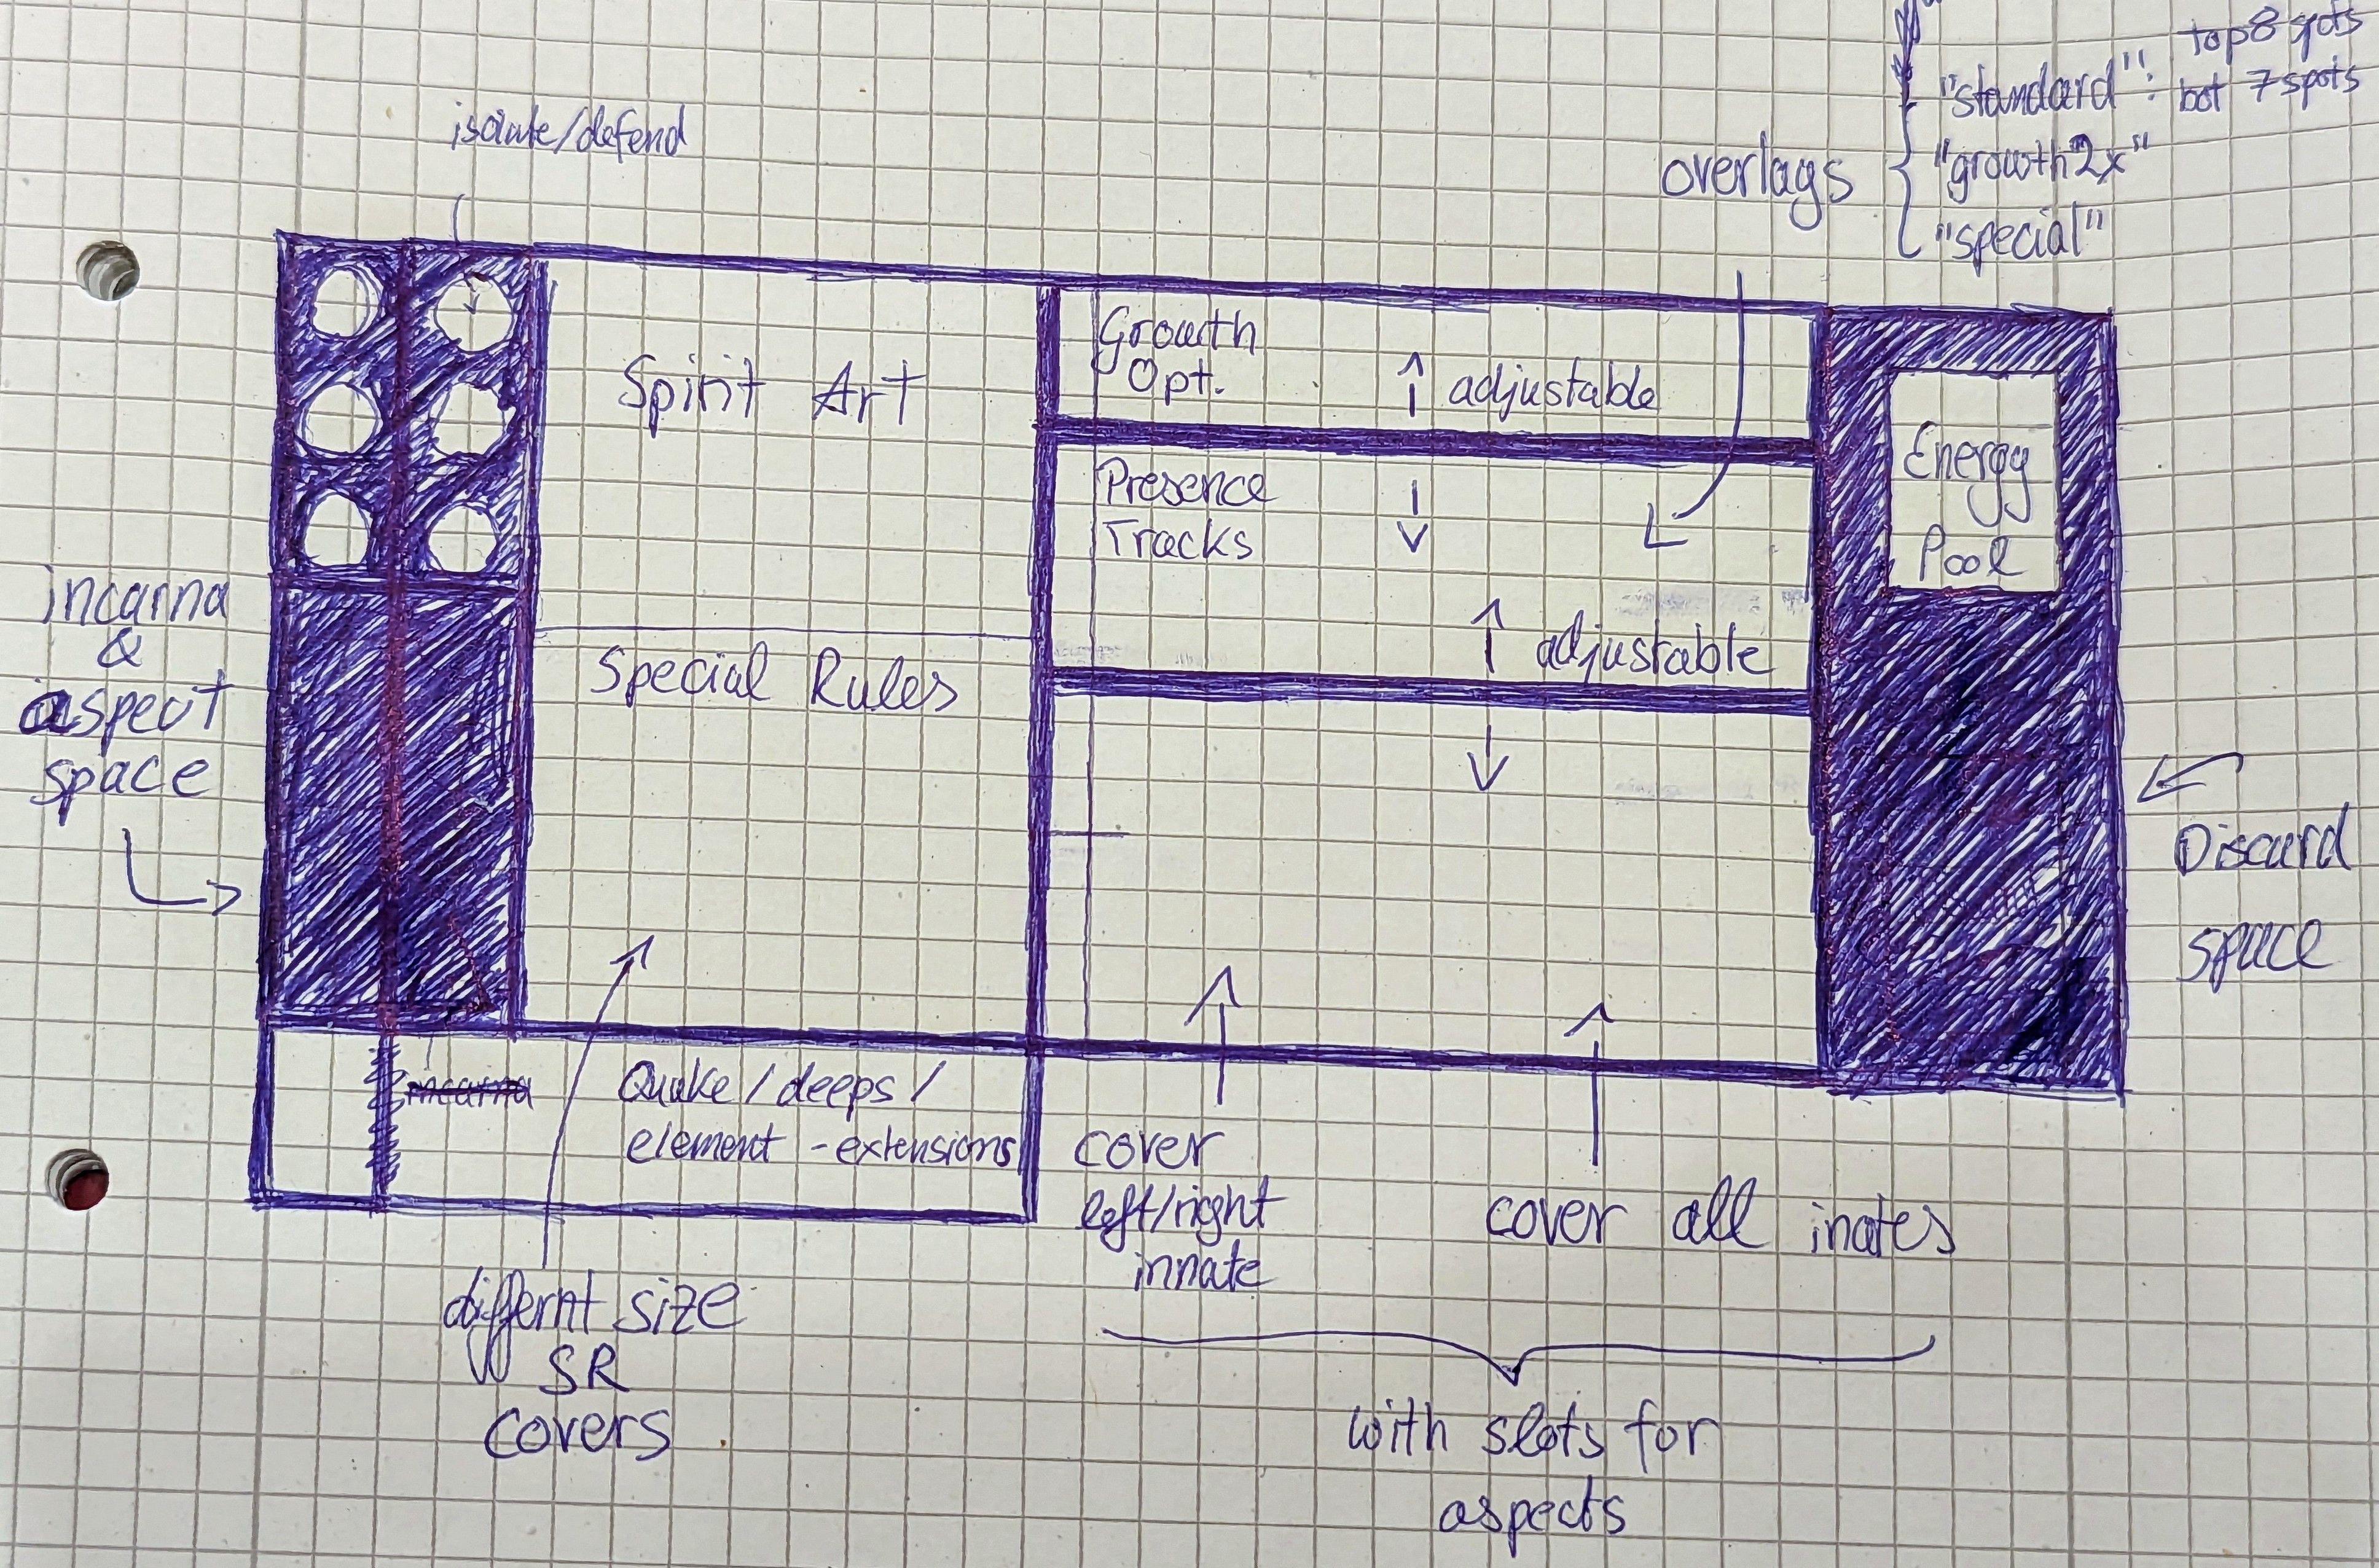 top 8 spots
"standard": bot 7 spots
overlags
"growth 2x"
"special"
isolate/defend
Spirit Art
Growth
Opt.
adjustable
Presence
Tracks
adjustable
Energy
Pool
incarna
&
aspect
space
Special Rules
Discard
space
incarna
Quake/deeps/
element-extensions
cover
left/right
innate
cover all inates
differnt size
SR
covers
with slots for
aspects